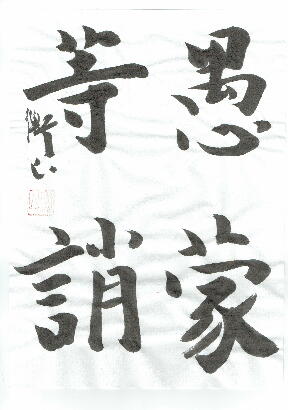 愚蒙
等誚